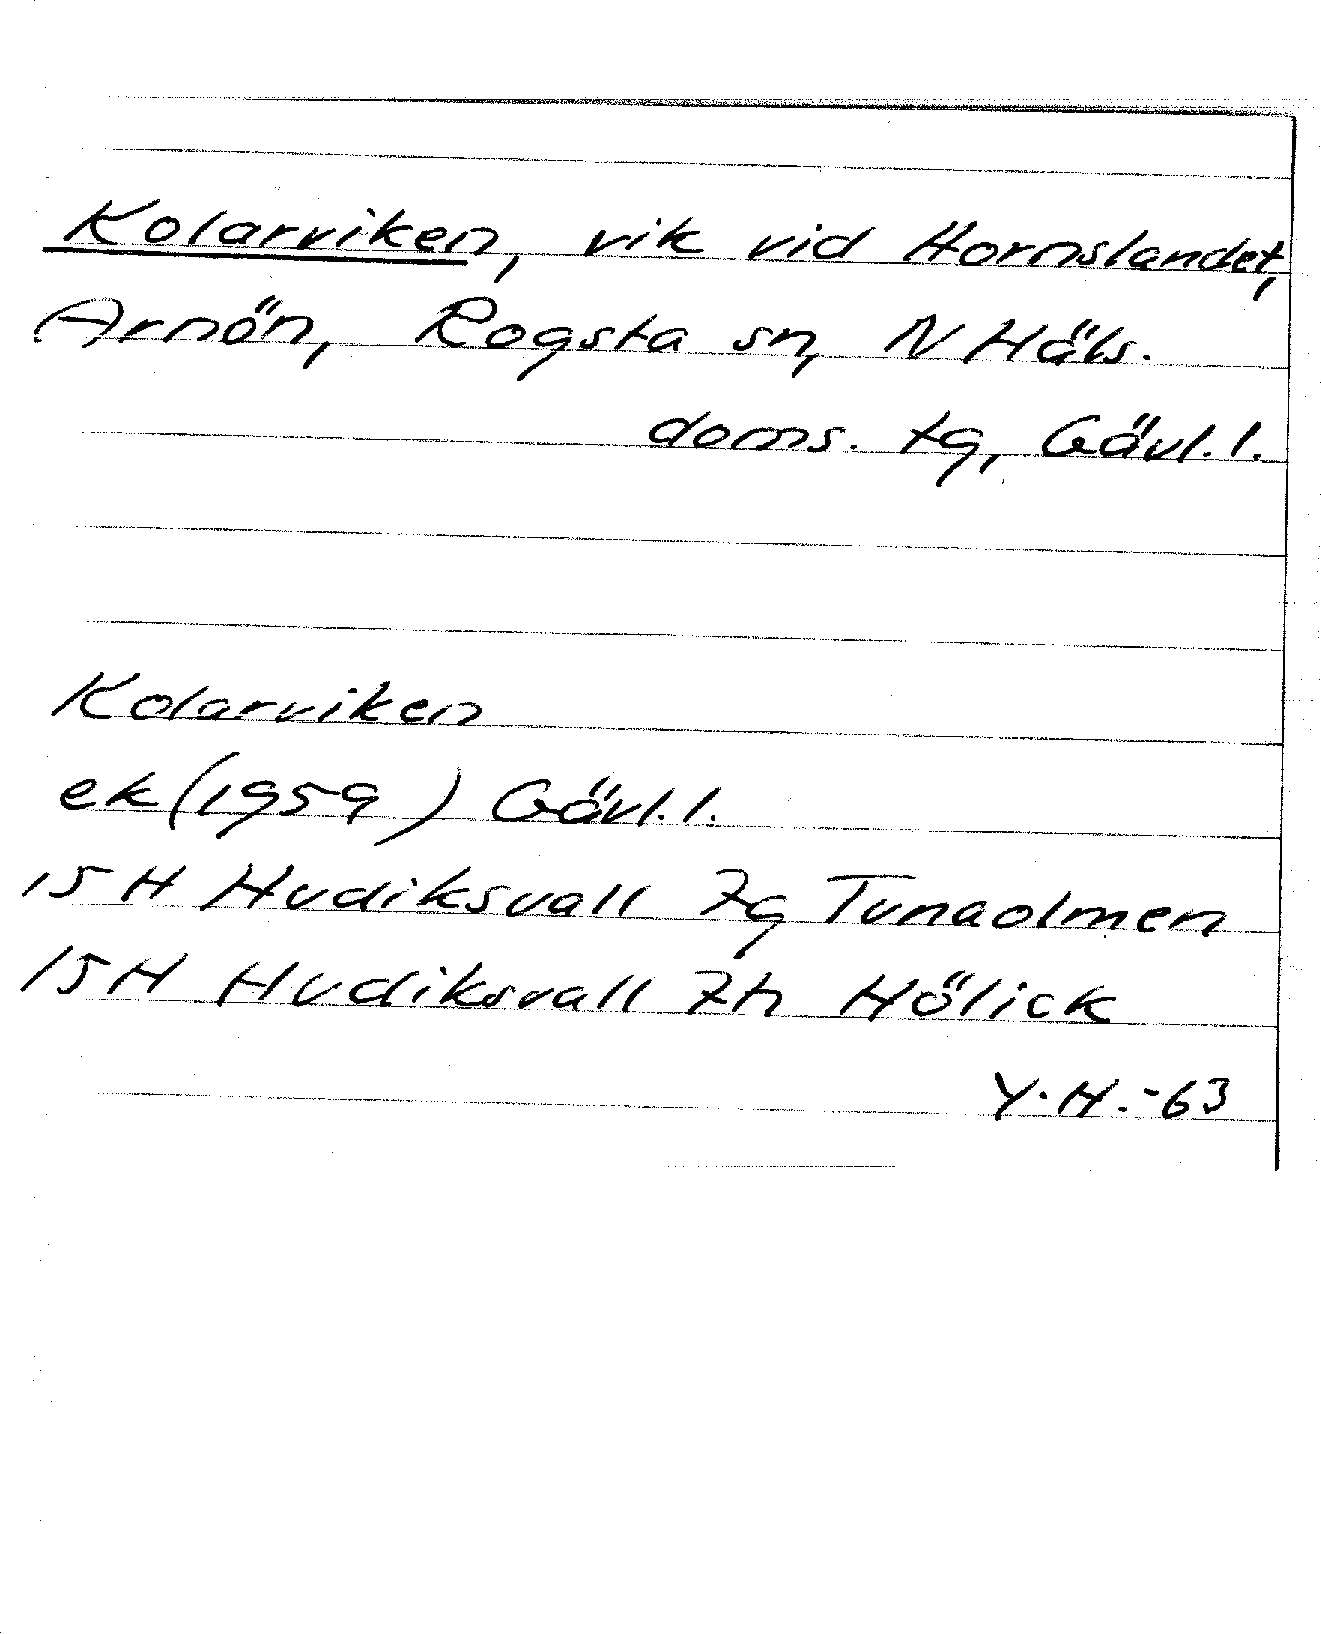 Kolarviken, vik vid Hornslandet,
Arnön, Rogsta sn, N Häls.
doms. tg, Gävl. l.
Kolarviken
ek (1959) Gävl. l.
15 H Hudiksvall 7g Tunaolmen
15 H Hudiksvall 7h Hölick
Y. H. -63